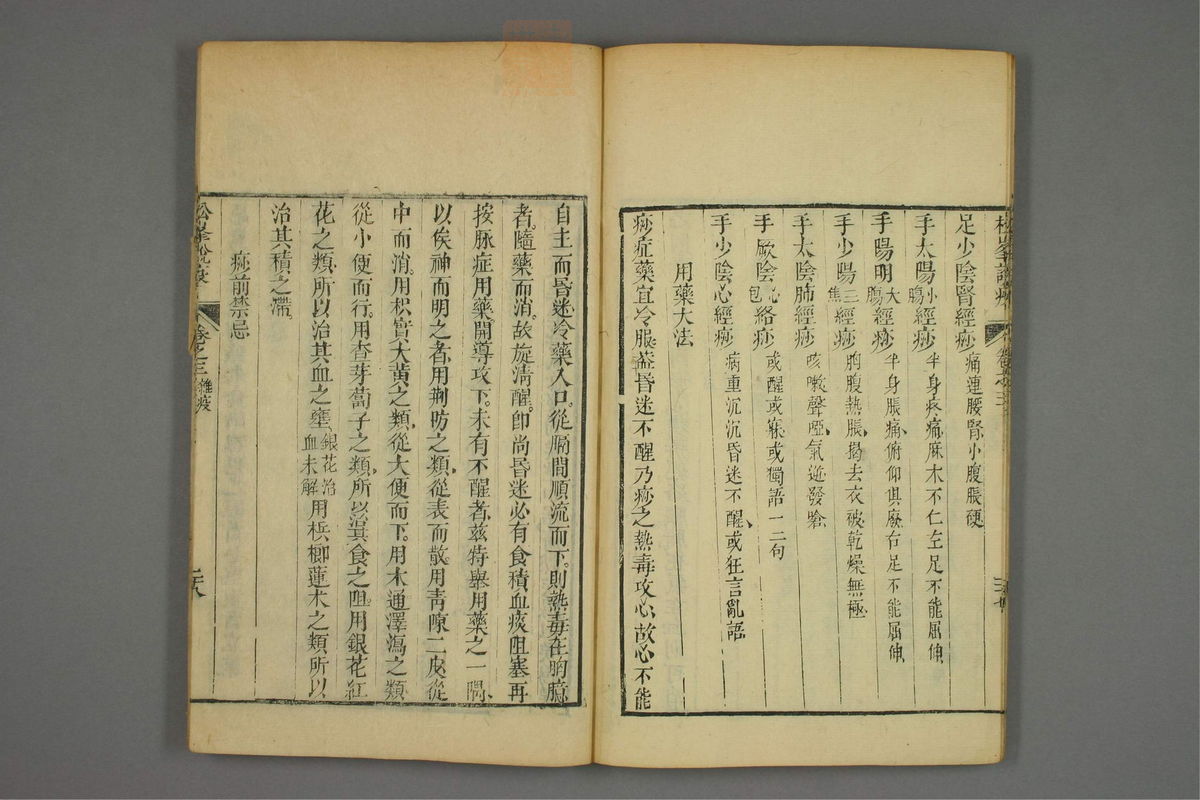 足少陰腎經痧 痛連腰腎小腹脹硬
手太陽小腸經痧 半身疼痛麻木不仁左足不能屈伸
手陽明大腸經痧 半身脹痛俯仰俱廢右足不能屈伸
手少陽三焦經痧 胸腹熱脹揭去衣被乾燥無極
手太陰肺經痧 咳嗽聲啞氣逆發嗆
手厥陰心包絡痧 或醒或寐或獨語一二句
手少陰心經痧 病重沉沉昏迷不醒或狂言亂語
用藥大法
痧症藥宜冷服葢昏迷不醒乃痧之熱毒攻心故心不能
自主而昏迷冷藥入口從膈間順流而下則熱毒在胸膈
者隨藥而消故旋清醒卽尚昏迷必有食積血痰阻塞再
按脉症用藥開導攻下未有不醒者茲特舉用藥之一隅
以俟神而明之者用荆防之類從表而散用青陳二皮從
中而消用枳實大黃之類從大便而下用木通澤瀉之類
從小便而行用查芽蔔子之類所以治其食之阻用銀花紅
花之類所以治其血之壅銀花治血未解用梹榔蓬朮之類所以
治其積之滯
痧前禁忌
松峯說疫 卷之三 雜疫 二十八